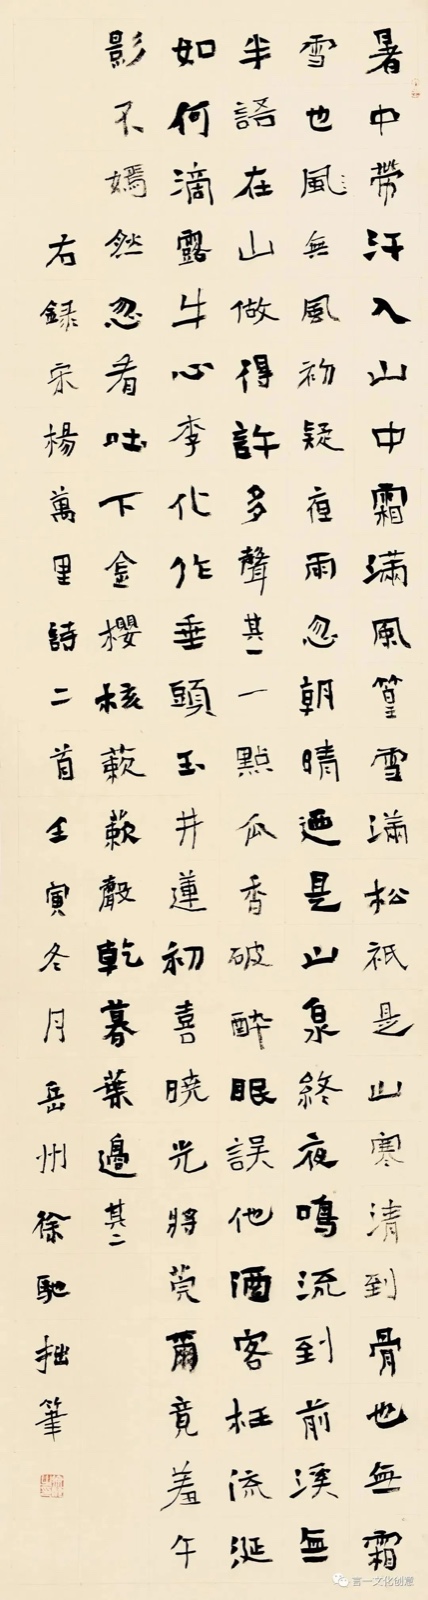 暑中帶汗入山中霜滿風篁雪滿松祇是山寒清到骨也無霜
雪也風無風初疑夜雨忽朝晴迺是山泉終夜鳴流到前溪無
半語在山做得許多聲其一一點瓜香破醉眠誤他酒客枉流涎
如何滴露牛心李化作垂頭玉井蓮初喜曉光將莞爾竟羞午
影不嫣然忽看吐下金櫻核蔌蔌聲乾暮葉邊其二
右錄宋楊萬里詩二首壬寅冬月岳州徐馳拙筆
言一文化创意